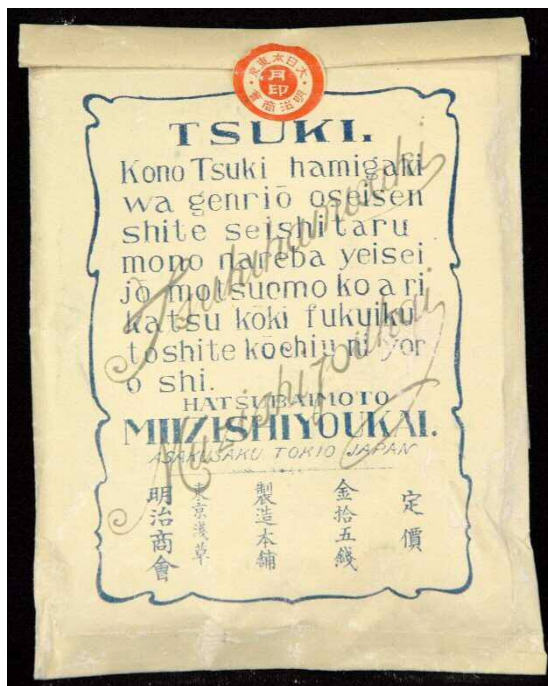 大日本東京
月印
明治商會
TSUKI.
Kono Tsuki hamigaki
wa genriō oseisen
shite seishi taru
mono nareba yeisei
jō motsuomo ko a ri
katsu kōki fukuiku
toshite kōchiu ni yor
o shi.
HATSUBAIMOTO
MIIZISHIYOUKAI.
ASAKUSAKU TOKIO JAPAN
定價
金拾五錢
製造本舖
東京淺草
明治商會